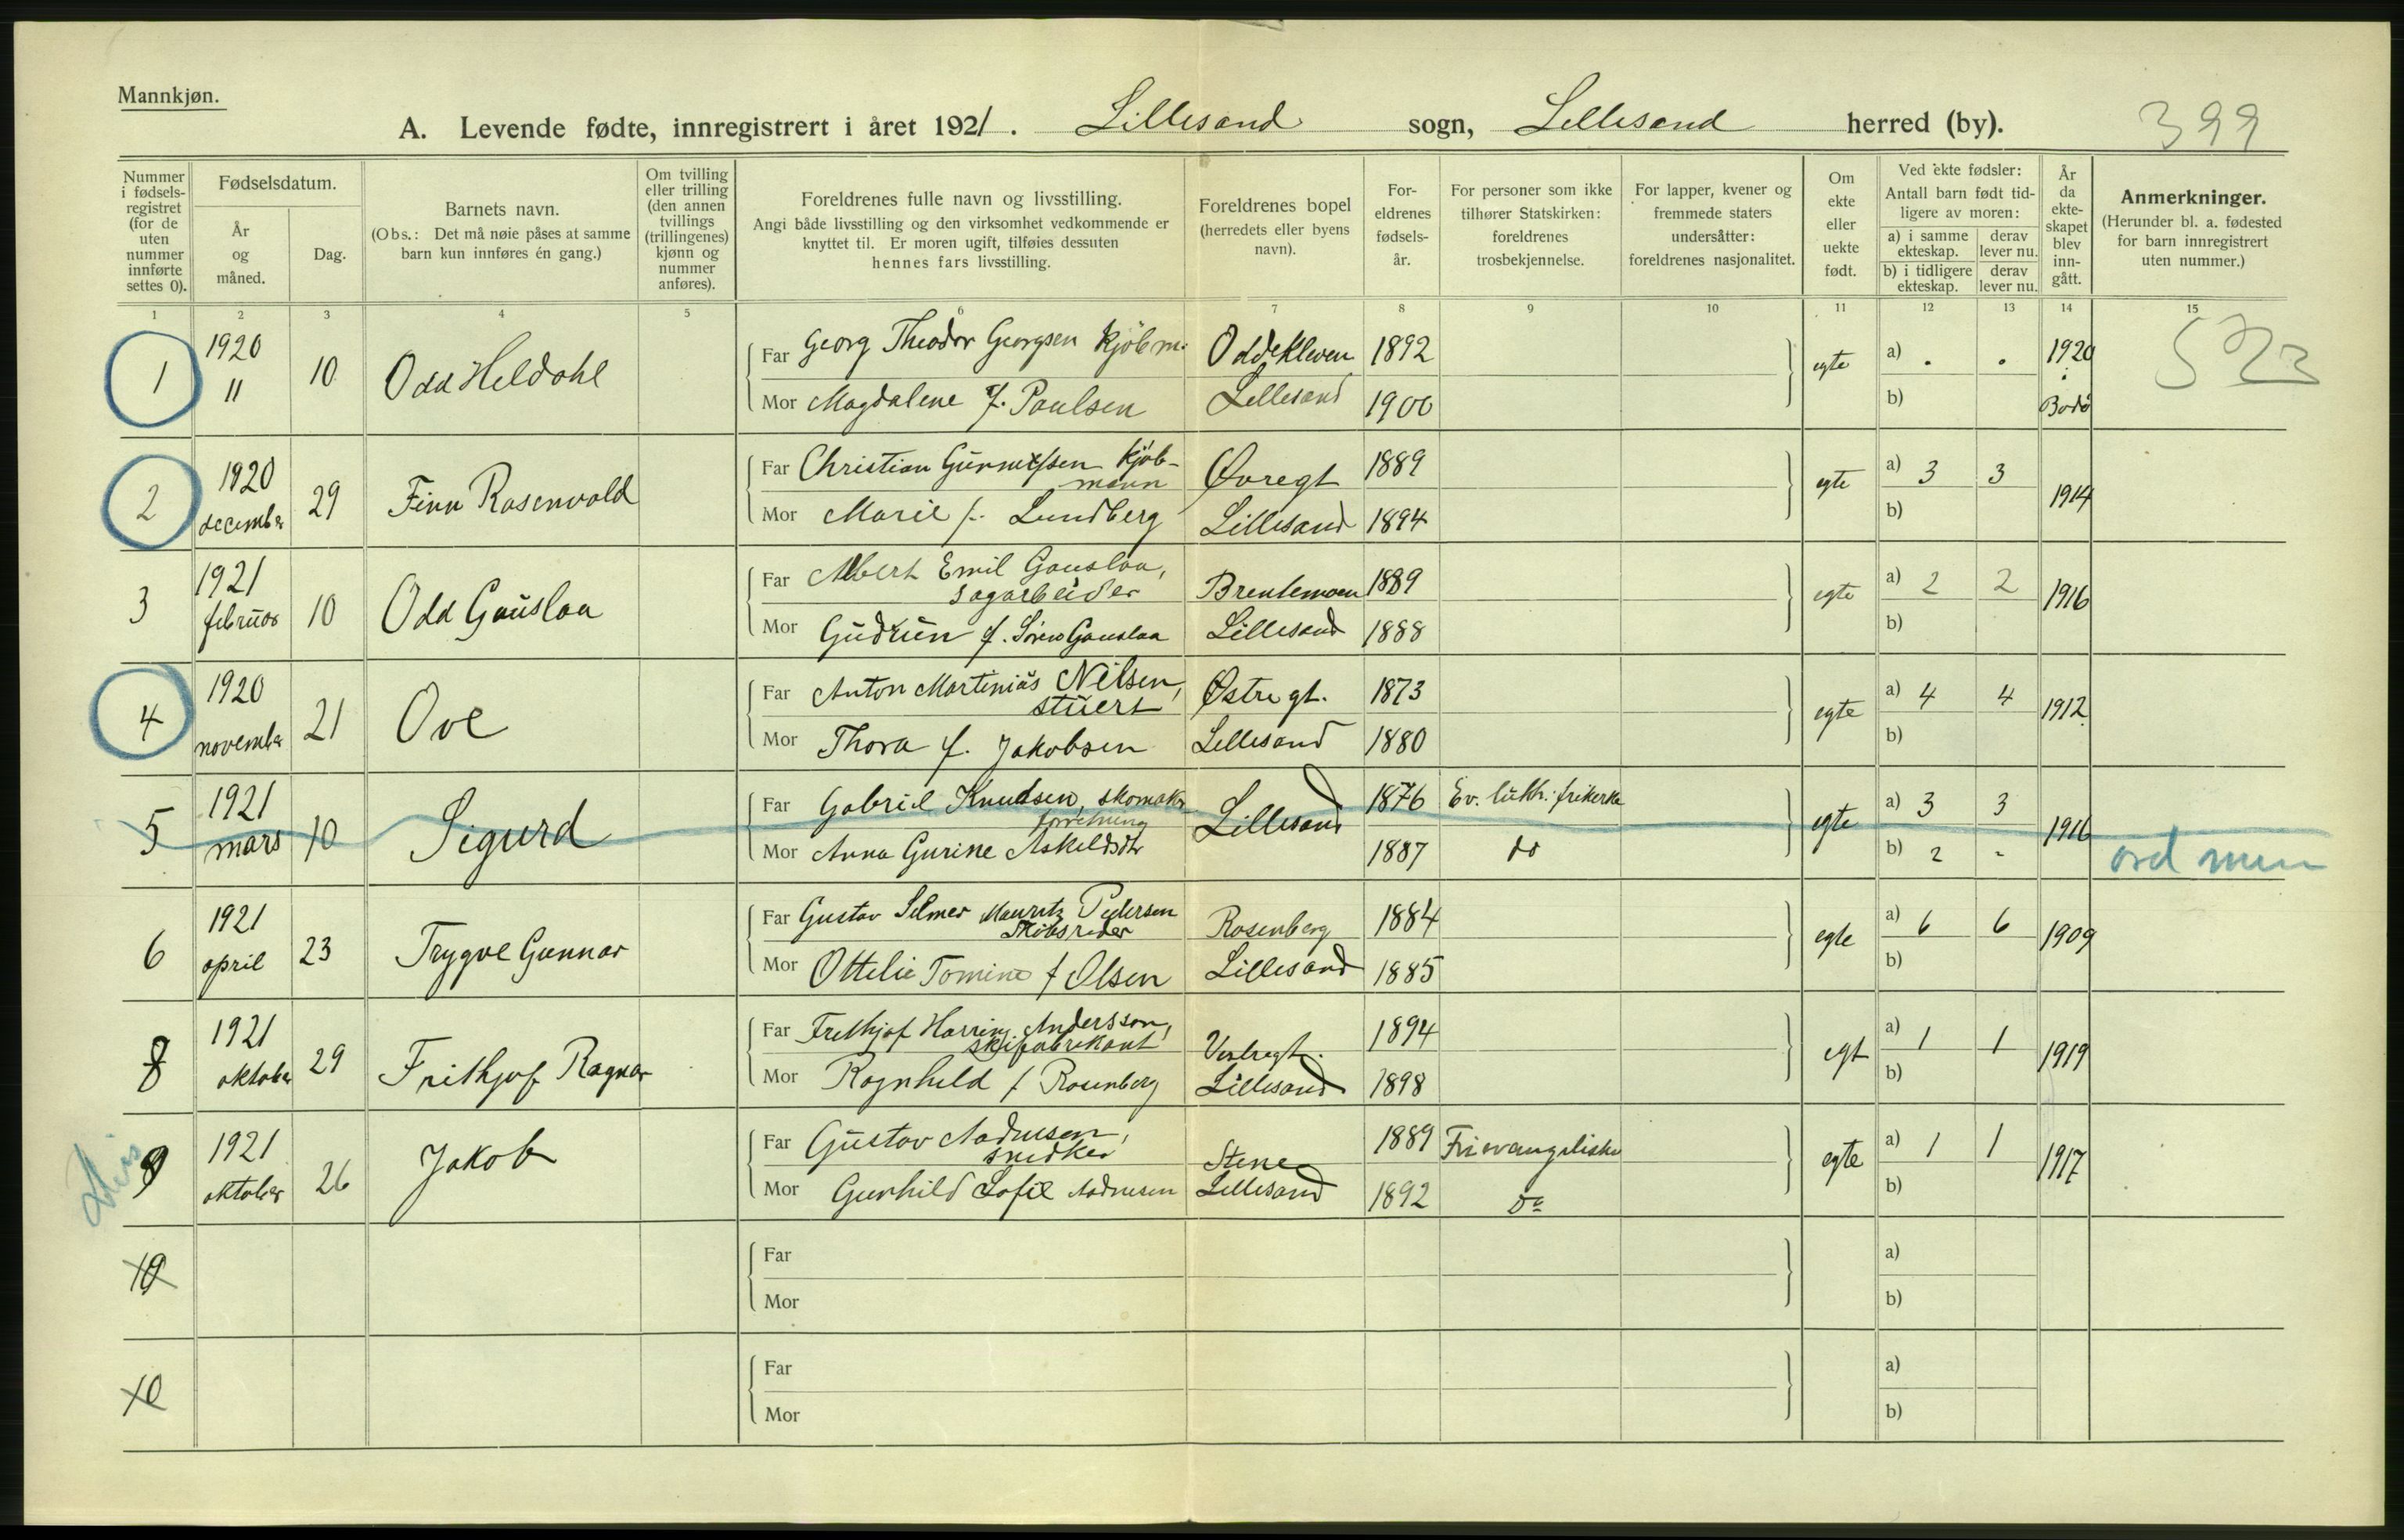 Mannkjøn.
A. Levende fødte, innregistrert i året 1921. Lillesand sogn, Lillesand herred (by). 399
Nummer i fødsels-registret (for de uten nummer innførte settes 0).
Fødselsdatum.
År og måned.
Dag.
Barnets navn.
(Obs.: Det må nøie påses at samme barn kun innføres én gang.)
Om tvilling eller trilling (den annen tvillings (trillingenes) kjønn og nummer anføres).
Foreldrenes fulle navn og livsstilling.
Angi både livsstilling og den virksomhet vedkommende er knyttet til. Er moren ugift, tilføies dessuten hennes fars livsstilling.
Foreldrenes bopel (herredets eller byens navn).
For-eldrenes fødsels-år.
For personer som ikke tilhører Statskirken: foreldrenes trosbekjennelse.
For lapper, kvener og fremmede staters undersåtter: foreldrenes nasjonalitet.
Om ekte eller uekte født.
Ved ekte fødsler: Antall barn født tid-ligere av moren:
a) i samme ekteskap. derav lever nu.
b) i tidligere ekteskap. derav lever nu.
År da ekte-skapet blev inn-gått.
Anmerkninger.
(Herunder bl. a. fødested for barn innregistrert uten nummer.)
1 2 3 4 5 6 7 8 9 10 11 12 13 14 15
1 1920 11 10 Odd Heldahl
Far Georg Theodor Georgsen Kjöbm. Oddekleven 1892 egte a) . . 1920
Mor Magdalene f. Paulsen Lillesand 1900 b) Bodö
523
2 1920 december 29 Finn Rosenvold
Far Christian Kjöb-mann Øvregt 1889 egte a) 3 3 1914
Mor Marie f. Lundberg Lillesand 1894 b)
3 1921 februar 10 Odd Gauslaa
Far Albert Emil Gauslaa, sagarbeider Brentemoen 1889 egte a) 2 2 1916
Mor Gudrun f. Sören Gauslaa Lillesand 1888 b)
4 1920 november 21 Ove
Far Anton Martinius Nilsen, stuert Østregt. 1873 egte a) 4 4 1912
Mor Thora f. Jakobsen Lillesand 1880 b)
5 1921 mars 10 Sigurd
Far Gabriel Knudsen, skomaker forretning Lillesand 1876 Ev. luth. frikerke egte a) 3 3 1916
Mor Anna Gurine Askeldsdtr 1887 do b) 2 -
6 1921 april 23 Trygve Gunnar
Far Gustav Selmer Mauritz Pedersen Skibsreder Rosenberg 1884 egte a) 6 6 1909
Mor Ottelie Tomine f Olsen Lillesand 1885 b)
8 1921 oktober 29 Frithjof Ragnar
Far Frithjof Andersson, skifabrikant Vestregt. 1894 egt a) 1 1 1919
Mor Ragnhild f Rosenberg Lillesand 1898 b)
9 1921 oktober 26 Jakob
Far Gustav Aadnesen, snedker Stene 1889 Frievangeliske egte a) 1 1 1917
Mor Gunhild Sofie Aadnesen Lillesand 1892 Do b)
10
Far a)
Mor b)
10
Far a)
Mor b)